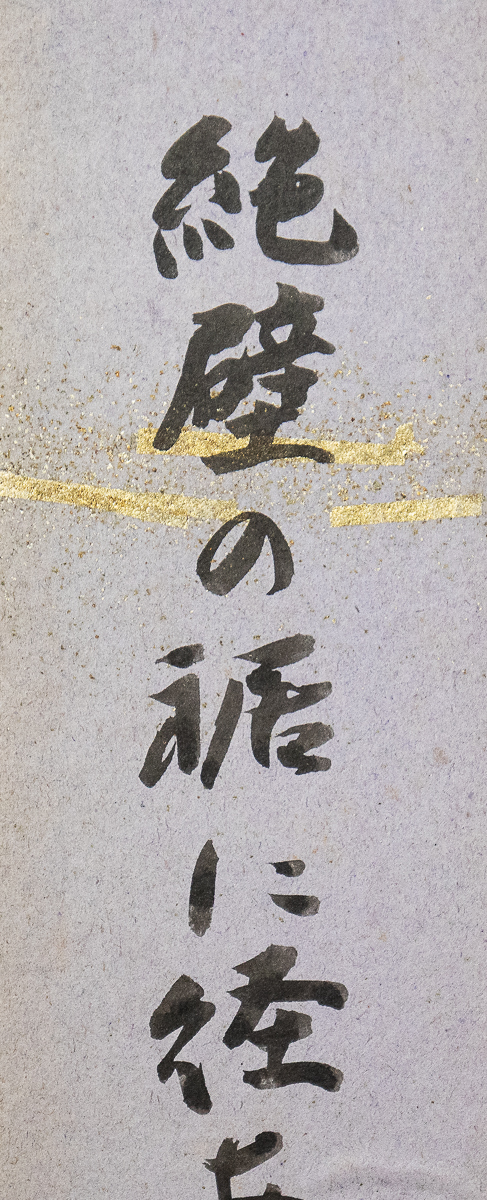 絶壁の裾に径